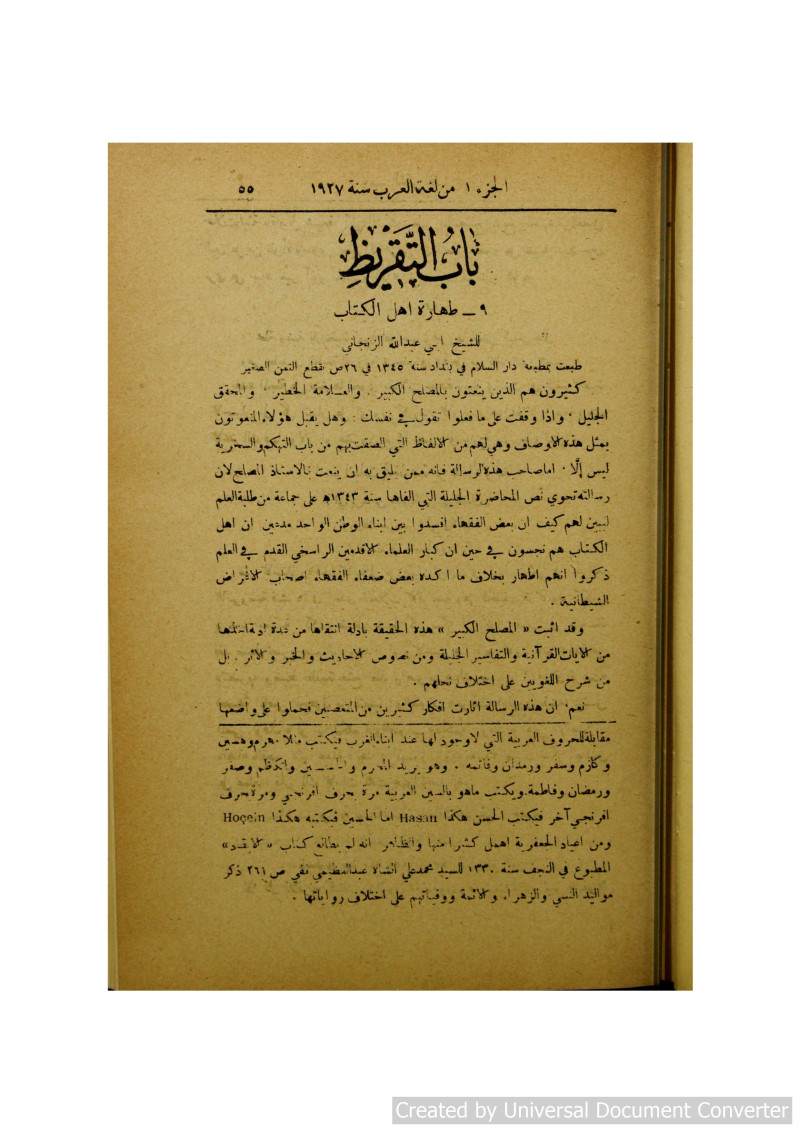 الجزء ١ من لغة العرب سنة ١٩٢٧ ٥٥
بَابُ التَّقْرِيْظِ
٩ ــ طهارة اهل الكتاب
للشيخ ابي عبدالله الزنجاني
طبعت بمطبعة دار السلام في بغداد سنة ١٣٤٥ في ٢٦ص بقطع الثمن الصغير
كثيرون هم الذين ينعتون بالمصلح الكبير . والعلامة الخطير ، والمحقق
الجليل ، واذا وقفت على ما فعلوا تقول في نفسك : وهل يقبل هؤلاء المنعوتون
بمثل هذه الاوصاف وهي لهم من الالفاظ التي الصقت بهم من باب التهكم والسخرية
ليس إلَّا . اما صاحب هذه الرسالة فانه ممن يليق به ان ينعت بالاستاذ المصلح لان
رسالته تحوي نص المحاضرة الجليلة التي القاها سنة ١٣٤٣ه على جماعة من طلبة العلم
ليبين لهم كيف ان بعض الفقهاء افسدوا بين ابناء الوطن الواحد مدعين ان اهل
الكتاب هم نجسون في حين ان كبار العلماء الاقدمين الراسخي القدم في العلم
ذكروا انهم اطهار بخلاف ما اكده بعض ضعفاء الفقهاء اصحاب الاغراض
الشيطانية .
وقد اثبت « المصلح الكبير » هذه الحقيقة بادلة انتقاها من عدة ادلة اتخذها
من الايات القرآنية والتفاسير الجليلة ومن نصوص الاحاديث والخبر والاثر بل
من شرح اللغويين على اختلاف نحلهم .
نعم، ان هذه الرسالة اثارت افكار كثيرين من المتعصبين فحملوا على واضعها
مقابلة للحروف العربية التي لا وجود لها عند ابناء الغرب فيكتب مثلا مهرم وهسين
وكازم وسفر ورمدان وفاتمه . وهو يريد المحرم والحسين والكاظم وصفر
ورمضان وفاطمة. ويكتب ماهو بالسين العربية مرة بحرف افرنجي ومرة بحرف
افرنجي آخر فيكتب الحسن هكذا Hasan اما الحسين فيكتبه هكذا Hoçein
ومن اعياد الجعفرية اهمل كثيرا منها والظاهر انه لم يطالع كتاب
المطبوع في النجف سنة ١٣٣٠ للسيد محمد علي الشاه عبدالعظيمي ففي ص ٢٦١ ذكر
مواليد النبي والزهراء والائمة ووفياتهم على اختلاف رواياتها .
Created by Universal Document Converter